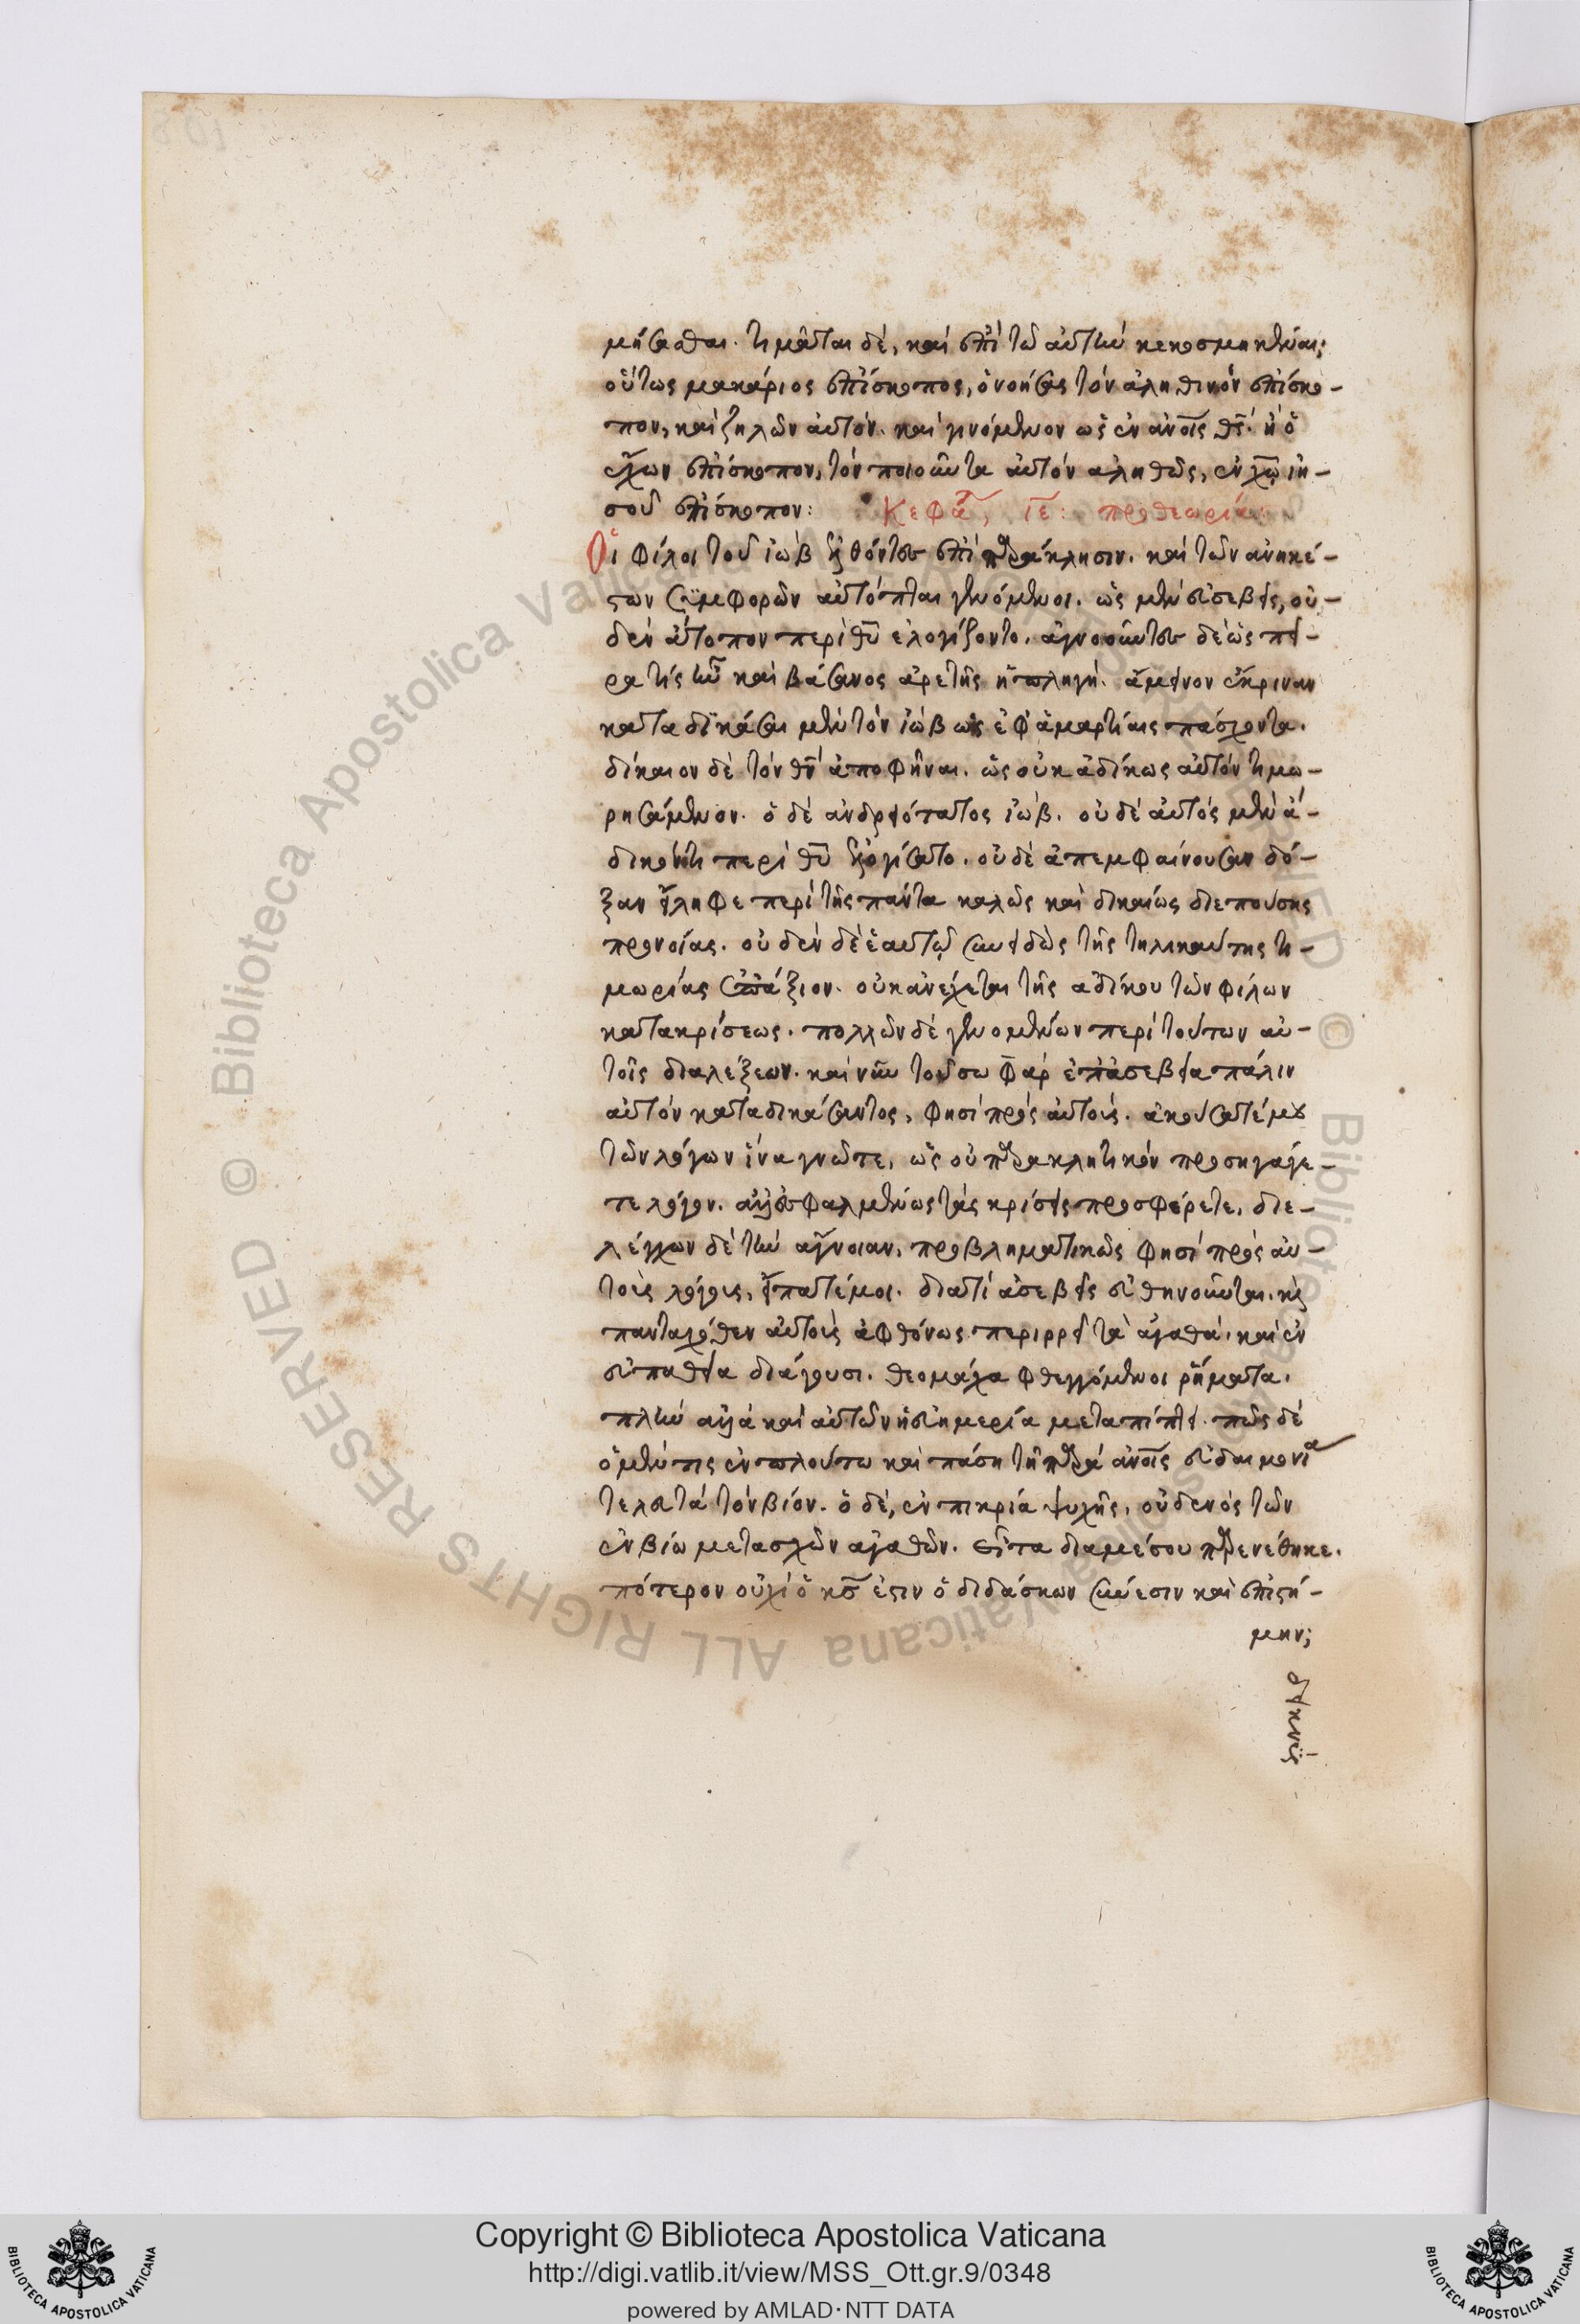 μήσασθαι. τιμᾶται δέ, καὶ ἐπὶ τῶ αὐτὴν κεκοσμηκέναι;
οὕτως μακάριος ἐπίσκοπος, ὁ νοήσας τὸν ἀληθινὸν ἐπίσκο-
πον, καὶ ζηλῶν αὐτόν. καὶ γινόμενον ὡς ἐν ἀνοῖς θς. ἢ ὁ
ἔχων ἐπίσκοπον, τὸν ποιοῦντα αὐτὸν ἀληθῶς, ἐν χῶ ἰη-
σοῦ ἐπίσκοπον:
Κεφα, ιε: προθεωρία:
Οἱ φίλοι τοῦ ἰὼβ ἐλθόντες ἐπὶ παράκλησιν. καὶ τῶν ἀνηκέ-
στων συμφορῶν αὐτόπται γενόμενοι. ὡς μὲν εὐσεβεῖς, οὐ-
δὲν ἄτοπον περὶ θυ ἐλογίζοντο. ἀγνοοῦντες δὲ ὡς πεῖ-
ρα τίς ἦν καὶ βάσανος ἀρετῆς ἡ πληγή. ἄμεινον ἔκριναν
καταδικάσαι μὲν τὸν ἰὼβ ὡς ἐφ' ἁμαρτίαις πάσχοντα.
δίκαιον δὲ τὸν θν ἀποφῆναι. ὡς οὐκ ἀδίκως αὐτὸν τιμω-
ρησάμενον. ὁ δὲ ἀνδρειότατος ἰώβ. οὐδὲ αὐτὸς μὲν ἄ-
δικόν τι περὶ θυ ἐλογίσατο. οὐδὲ ἀπεμφαίνουσαν δό-
ξαν εἴληφε περὶ τῆς πάντα καλῶς καὶ δικαίως διεπούσης
προνοίας. οὐδὲν δὲ ἑαυτῷ συνειδὼς τῆς τηλικαύτης τι-
μωρίας ἐπάξιον. οὐκ ἀνέχεται τῆς ἀδίκου τῶν φίλων
κατακρίσεως. πολλῶν δὲ γενομένων περὶ τούτων αὐ-
τοῖς διαλέξεων. καὶ νῦν τοῦ σωφαρ ἐπ' ἀσεβεία πάλιν
αὐτὸν καταδικάσαντος, φησὶ πρὸς αὐτούς. ἀκούσατέ μου
τῶν λόγων ἵνα γνῶτε, ὡς οὐ παρακλητικὸν προσηγάγε-
τε λόγον. ἀλλ' ἐσφαλμένως τὰς κρίσεις προσφέρετε. διε-
λέγχων δὲ τὴν ἄγνοιαν, προβληματικῶς φησὶ πρὸς αὐ-
τοὺς λόγοις, εἴπατέ μοι. διατί ἀσεβεῖς εὐθηνοῦνται. κὶ
πανταχόθεν αὐτοὺς ἀφθόνως περιρρεῖ τὰ ἀγαθά. καὶ ἐν
εὐπαθεία διάγουσι. θεομάχα φθεγγόμενοι ῥήματα.
πλὴν ἀλλὰ καὶ αὐτῶν ἡ εὐημερία μεταπίπτει. πῶς δὲ
ὁ μέν τις ἐν πλούτω καὶ πάση τῆ παρὰ ἀνοῖς εὐδαιμονία
τελευτᾶ τὸν βίον. ὁ δέ, ἐν πικρία ψυχῆς, οὐδενὸς τῶν
ἐν βίω μετασχῶν ἀγαθῶν. εἶτα διαμέσου παρενέθηκε.
πότερον οὐχὶ ὁ κς ἐστιν ὁ διδάσκων σύνεσιν καὶ ἐπιστή-
μην;
δεικνὺς